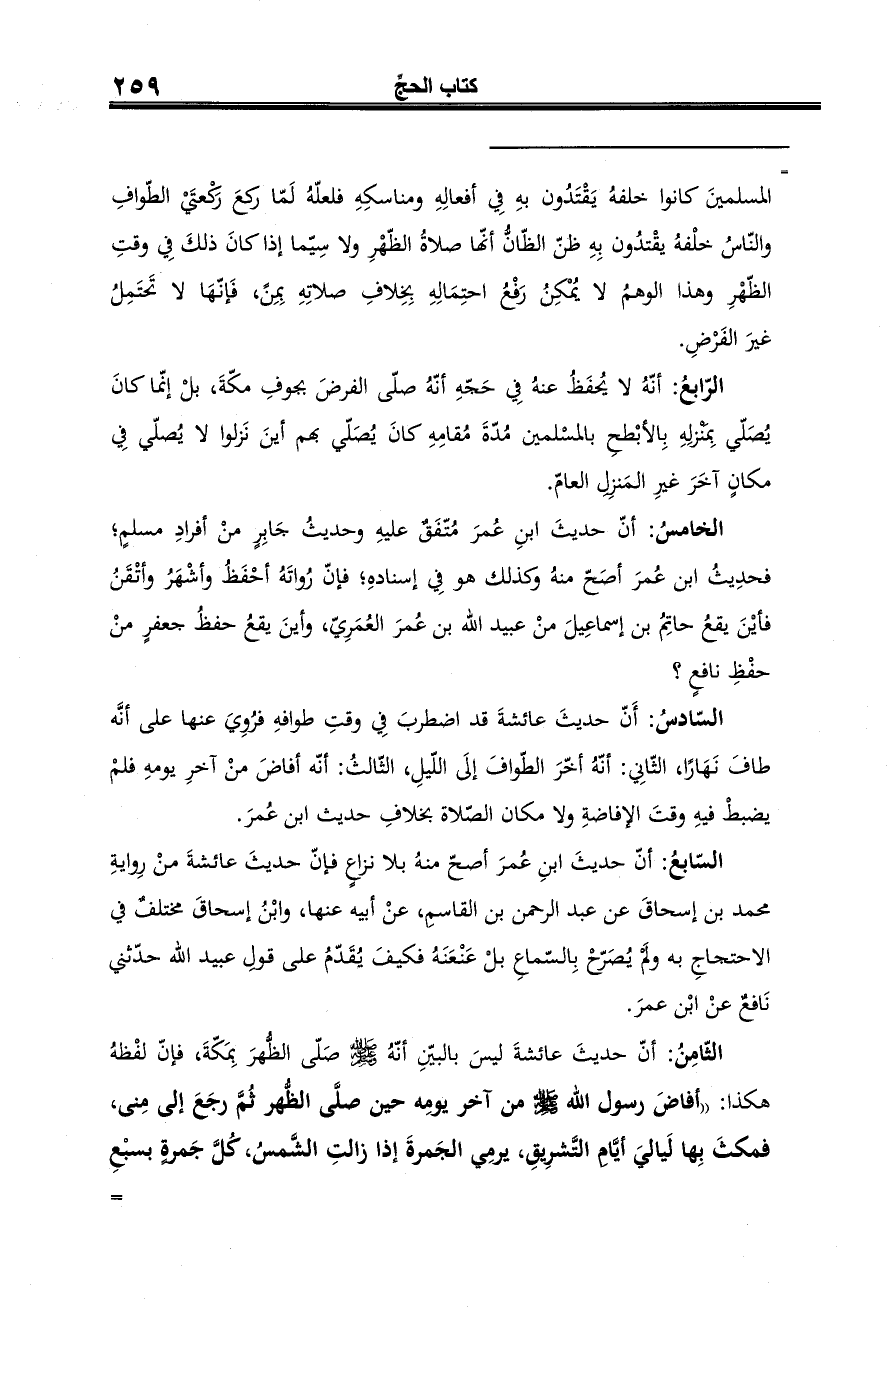 كتاب الحجّ ٢٥٩
=
المسلمينَ كانوا خلفهُ يَقْتَدُون بهِ فِي أفعالِهِ ومناسكِهِ فلعلّهُ لَمّا ركعَ رَكْعتَيْ الطّوافِ
والنّاسُ خلْفهُ يقْتدُون بِهِ ظنّ الظّانُّ أنّها صلاةُ الظّهْرِ ولا سيّما إذا كانَ ذلكَ فِي وقتِ
الظّهْرِ وهذا الوهمُ لا يُمْكِنُ رَفْعُ احتِمَالِهِ بِخِلافِ صلاتِهِ بِمِنًى، فَإنّهَا لا تَحتَمِلُ
غيرَ الفَرْضِ.
الرّابعُ: أنّهُ لا يُحفَظُ عنهُ فِي حَجّهِ أنّهُ صلّى الفرضَ بجوفِ مكّةَ، بلْ إنّما كانَ
يُصَلّي بِمَنْزِلِهِ بِالأبْطحِ بالمسْلمين مُدّةَ مُقامِهِ كانَ يُصَلّي بهم أينَ نَزلوا لا يُصلّي فِي
مكانٍ آخَرَ غيرِ المَنزِلِ العامّ.
الخامسُ: أنّ حديثَ ابنِ عُمرَ مُتّفَقٌ عليهِ وحديثُ جَابِرٍ منْ أفرادِ مسلمٍ؛
فحدِيثُ ابن عُمرَ أصَحّ منهُ وكذلك هو فِي إسنادهِ؛ فإنّ رُواتَهُ أحْفَظُ وأشْهَرُ وأتْقَنُ
فأيْنَ يقعُ حاتِمُ بن إسماعِيلَ منْ عبيد الله بن عُمرَ العُمَرِيّ، وأينَ يقعُ حفظُ جعفرٍ منْ
حفْظِ نافعٍ ؟
السّادسُ: أَنّ حديثَ عائشةَ قد اضطربَ فِي وقتِ طوافهِ فرُوِيَ عنها على أنّه
طافَ نَهَارًا، الثّانِي: أنّهُ أخّرَ الطّوافَ إلَى اللّيلِ، الثّالثُ: أنّه أفاضَ منْ آخرِ يومهِ فلمْ
يضبطْ فيهِ وقتَ الإفاضةِ ولا مكان الصّلاة بخلافِ حديث ابن عُمرَ.
السّابعُ: أنّ حديثَ ابنِ عُمرَ أصحّ منهُ بلا نزاعٍ فإنّ حديثَ عائشةَ منْ رِوايةِ
محمد بن إسحاقَ عن عبد الرحمن بن القاسمِ، عنْ أبيه عنها، وابْنُ إسحاقَ مختلفٌ فِي
الاحتجاجِ به ولَمْ يُصَرّحْ بِالسّماعِ بلْ عَنْعَنَهُ فكيفَ يُقَدّمُ على قولِ عبيد الله حدّثني
نَافعٌ عنْ ابْن عمرَ.
الثّامنُ: أنّ حديثَ عائشةَ ليسَ بالبيّنِ أنّهُ ﷺ صَلّى الظُّهرَ بِمَكّةَ، فإنّ لفْظهُ
هكذا: «أفاضَ رسول الله ﷺ من آخر يومِه حين صلَّى الظُّهر ثُمَّ رجَعَ إلى مِنى،
فمكثَ بِها لَياليَ أيَّامِ التَّشريقِ، يرمِي الجَمرةَ إذا زالتِ الشَّمسُ، كُلَّ جَمرةٍ بسبْعِ
=